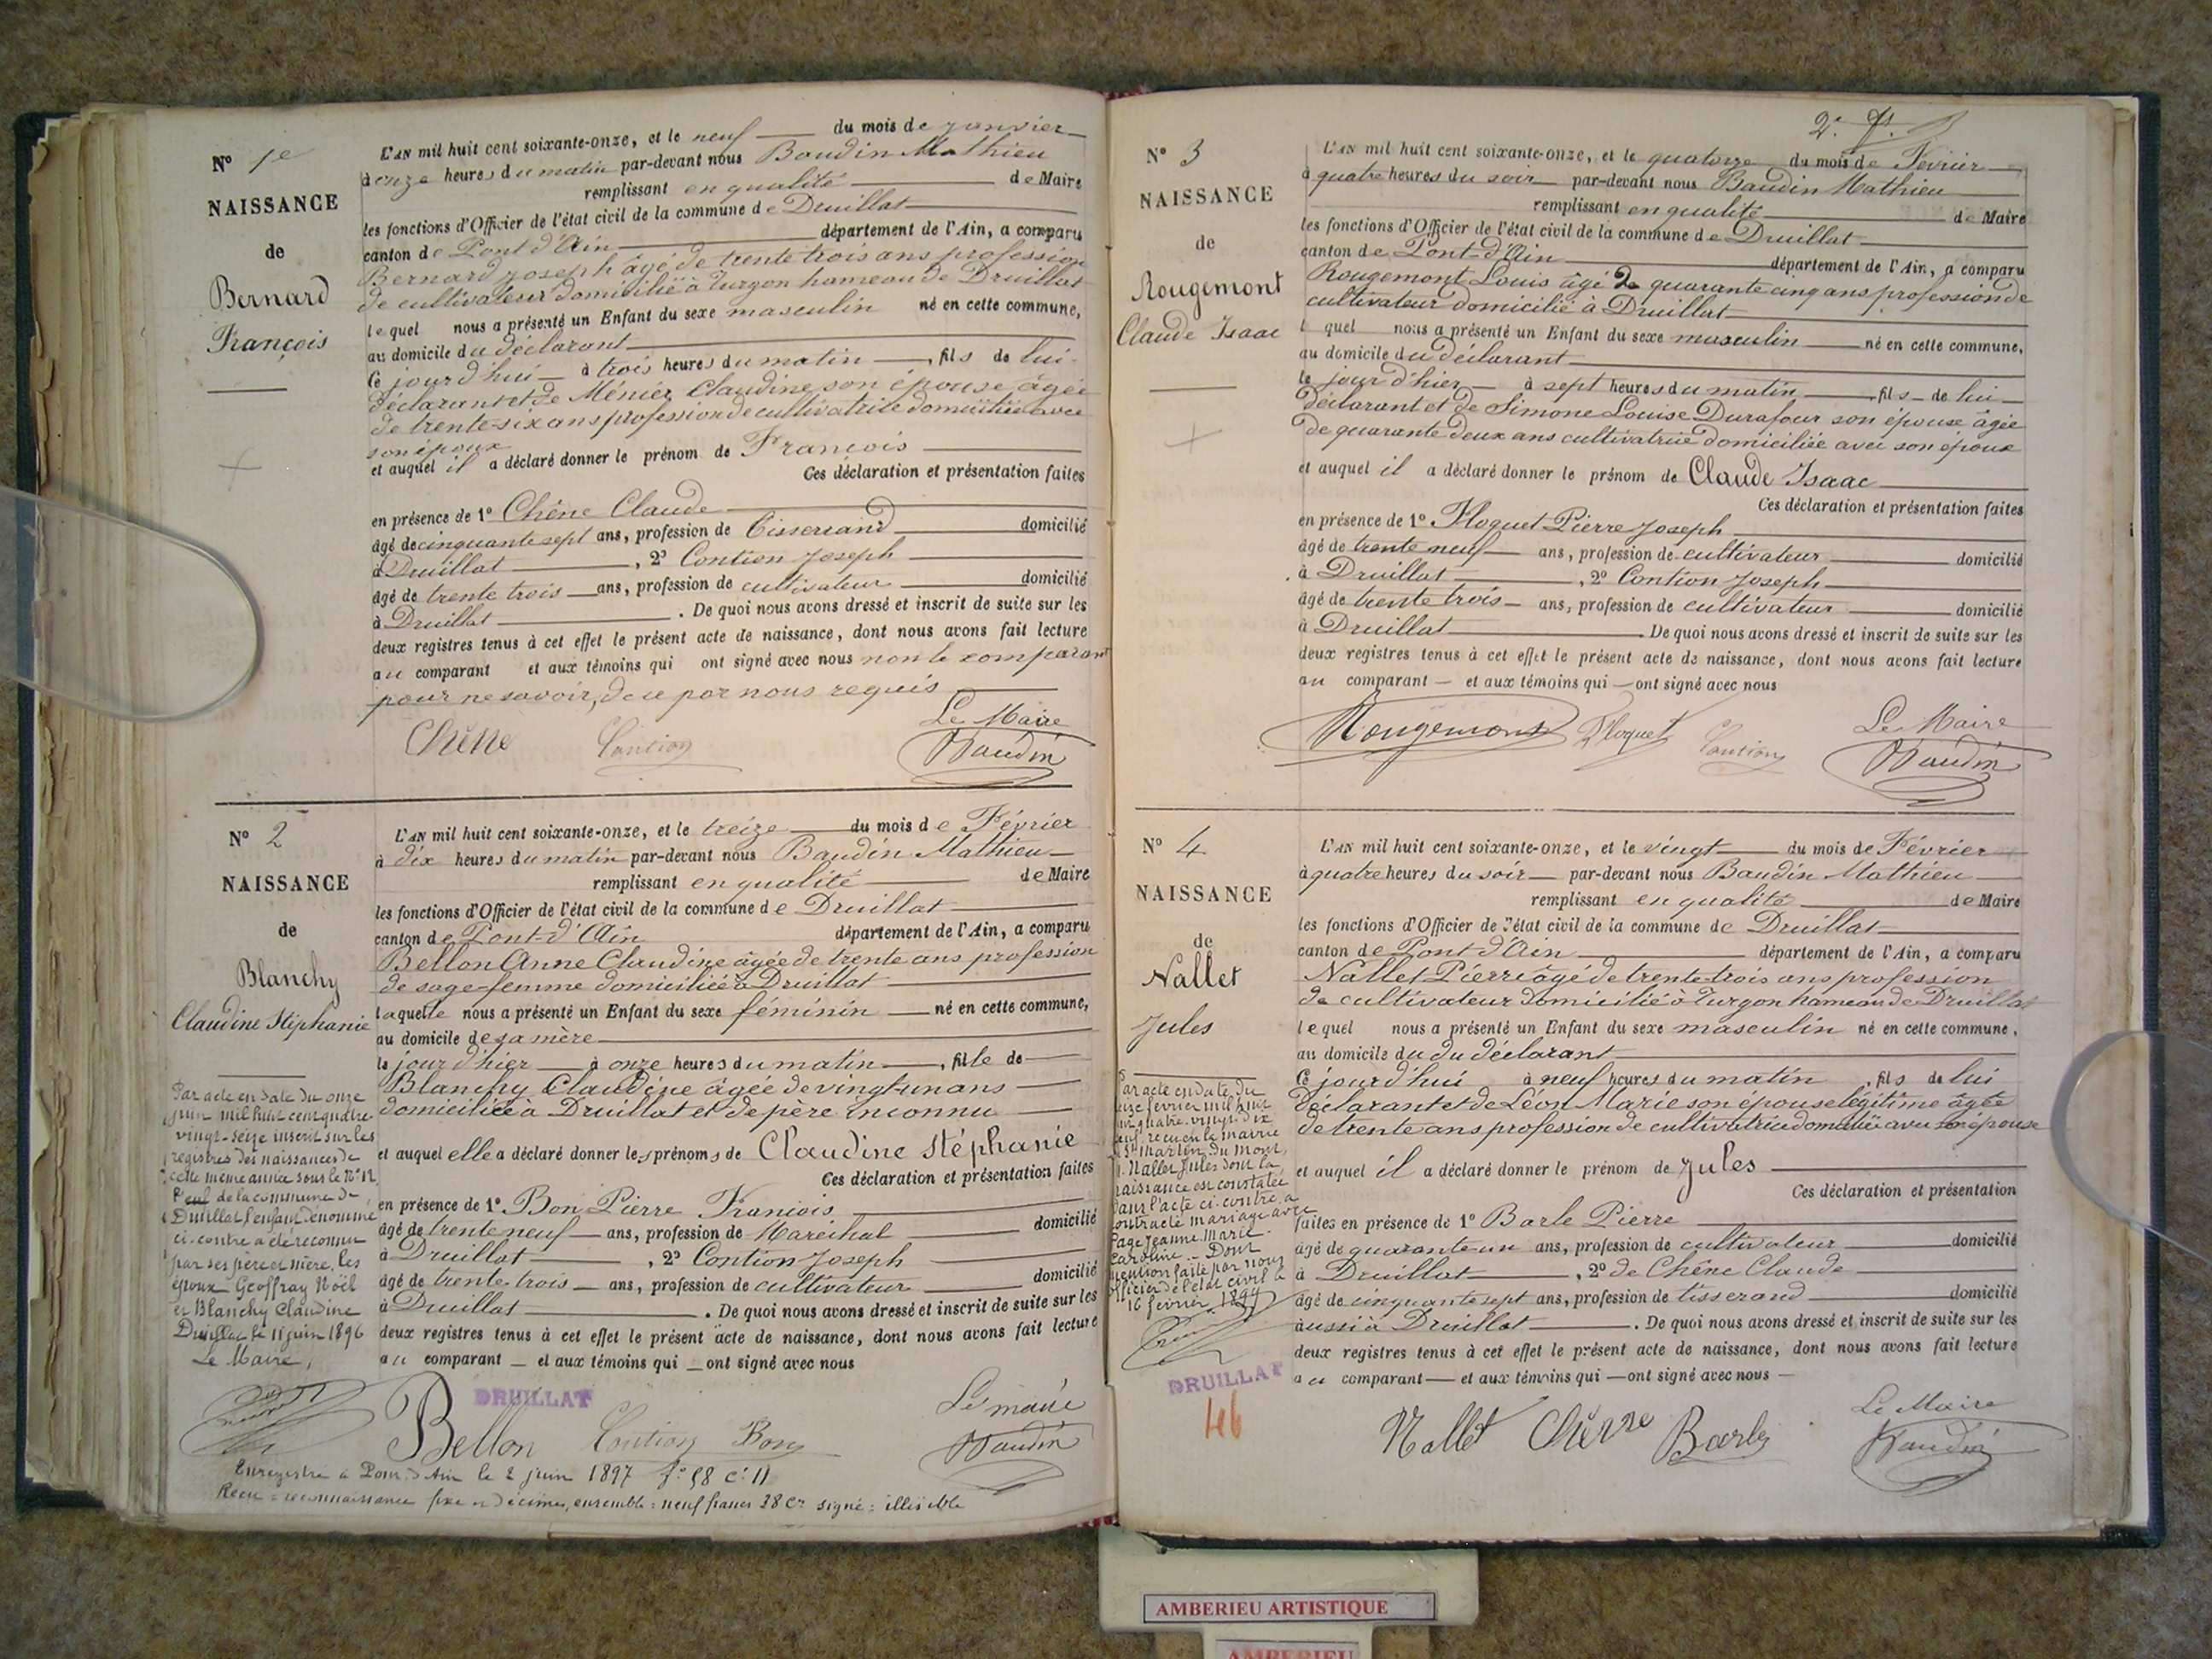 N° 1e
NAISSANCE
de
Bernard
François
L'AN mil huit cent soixante-onze, et le neuf du mois de janvier
à onze heures du matin par-devant nous Baudin Mathieu
remplissant en qualité de Maire
les fonctions d'Officier de l'état civil de la commune de Druillat
canton de Pont d'Ain département de l'Ain, a comparu
Bernard Joseph âgé de trente trois ans profession
de cultivateur domicilié à Turgon hameau de Druillat
lequel nous a présenté un Enfant du sexe masculin né en cette commune,
au domicile du déclarant
Ce jourd'hui à trois heures du matin, fils de lui
déclarant et de Ménier Claudine son épouse âgée
de trente-six ans profession de cultivatrice domiciliée avec
son époux
et auquel il a déclaré donner le prénom de François
Ces déclaration et présentation faites
en présence de 1° Chêne Claude
âgé de cinquante sept ans, profession de Tisserand domicilié
à Druillat, 2° Contion Joseph
âgé de trente trois ans, profession de cultivateur domicilié
à Druillat. De quoi nous avons dressé et inscrit de suite sur les
deux registres tenus à cet effet le présent acte de naissance, dont nous avons fait lecture
au comparant et aux témoins qui ont signé avec nous non le comparant
pour ne savoir, de ce par nous requis
Le Maire
Chêne Contion Baudin
N° 2
NAISSANCE
de
Blanchy
Claudine Stéphanie
Par acte en date du onze
juin mil huit cent quatre
vingt-seize inscrit sur les
registres des naissances de
cette même année sous le N° 12
de la commune de
Druillat l'enfant dénommé
ci-contre a été reconnu
par ses père et mère, les
époux Geoffray Noël
et Blanchy Claudine
Druillat le 11 juin 1896
Le Maire,
L'AN mil huit cent soixante-onze, et le treize du mois de Février
à dix heures du matin par-devant nous Baudin Mathieu
remplissant en qualité de Maire
les fonctions d'Officier de l'état civil de la commune de Druillat
canton de Pont-d'Ain département de l'Ain, a comparu
Bellon Anne Claudine âgée de trente ans profession
de sage-femme domiciliée à Druillat
laquelle nous a présenté un Enfant du sexe féminin né en cette commune,
au domicile de sa mère
le jour d'hier à onze heures du matin, fille de
Blanchy Claudine âgée de vingt-un ans
domiciliée à Druillat et de père inconnu
et auquel elle a déclaré donner les prénoms de Claudine Stéphanie
Ces déclaration et présentation faites
en présence de 1° Bon Pierre François
âgé de trente neuf ans, profession de Maréchal domicilié
à Druillat, 2° Contion Joseph
âgé de trente trois ans, profession de cultivateur domicilié
à Druillat. De quoi nous avons dressé et inscrit de suite sur les
deux registres tenus à cet effet le présent acte de naissance, dont nous avons fait lecture
au comparant et aux témoins qui ont signé avec nous
DRUILLAT
Le maire
Bellon Contion Bon Baudin
Enregistré à Pont d'Ain le 2 juin 1897 f° 58 c: 11
Reçu = reconnaissance fixe et décimes, ensemble = neuf francs 38 c signé: illisible
2e f.
N° 3
NAISSANCE
de
Rougemont
Claude Isaac
L'AN mil huit cent soixante-onze, et le quatorze du mois de Février
à quatre heures du soir par-devant nous Baudin Mathieu
remplissant en qualité de Maire
les fonctions d'Officier de l'état civil de la commune de Druillat
canton de Pont-d'Ain département de l'Ain, a comparu
Rougemont Louis âgé de quarante cinq ans profession de
cultivateur domicilié à Druillat
l quel nous a présenté un Enfant du sexe masculin né en cette commune,
au domicile du déclarant
le jour d'hier à sept heures du matin, fils de lui
déclarant et de Simone Louise Durafour son épouse âgée
de quarante deux ans cultivatrice domiciliée avec son époux
et auquel il a déclaré donner le prénom de Claude Isaac
Ces déclaration et présentation faites
en présence de 1° Floquet Pierre Joseph
âgé de trente neuf ans, profession de cultivateur domicilié
à Druillat, 2° Contion Joseph
âgé de trente trois ans, profession de cultivateur domicilié
à Druillat. De quoi nous avons dressé et inscrit de suite sur les
deux registres tenus à cet effet le présent acte de naissance, dont nous avons fait lecture
au comparant et aux témoins qui ont signé avec nous
Le Maire
Rougemont Floquet Contion Baudin
N° 4
NAISSANCE
de
Nallet
Jules
Par acte en date du
seize février mil huit
cent quatre-vingt-dix
neuf reçu en la mairie
de St Martin du Mont,
M. Nallet Jules dont la
naissance est constatée
dans l'acte ci-contre a
contracté mariage avec
Page Jeanne Marie
Caroline. Dont
mention faite par nous
officier de l'état civil le
16 février 1899
DRUILLAT
46
L'AN mil huit cent soixante-onze, et le vingt du mois de Février
à quatre heures du soir par-devant nous Baudin Mathieu
remplissant en qualité de Maire
les fonctions d'Officier de l'état civil de la commune de Druillat
canton de Pont d'Ain département de l'Ain, a comparu
Nallet Pierre âgé de trente trois ans profession
de cultivateur domicilié à Turgon hameau de Druillat
lequel nous a présenté un Enfant du sexe masculin né en cette commune,
au domicile du du déclarant
Ce jourd'hui à neuf heures du matin, fils de lui
déclarant et de Léon Marie son épouse légitime âgée
de trente ans profession de cultivatrice domiciliée avec son épouse
et auquel il a déclaré donner le prénom de Jules
Ces déclaration et présentation
faites en présence de 1° Barle Pierre
âgé de quarante un ans, profession de cultivateur domicilié
à Druillat, 2° de Chêne Claude
âgé de cinquante sept ans, profession de tisserand domicilié
aussi à Druillat. De quoi nous avons dressé et inscrit de suite sur les
deux registres tenus à cet effet le présent acte de naissance, dont nous avons fait lecture
au comparant et aux témoins qui ont signé avec nous
Le Maire
Nallet Chêne Barle Baudin
AMBERIEU ARTISTIQUE
AMBERIEU